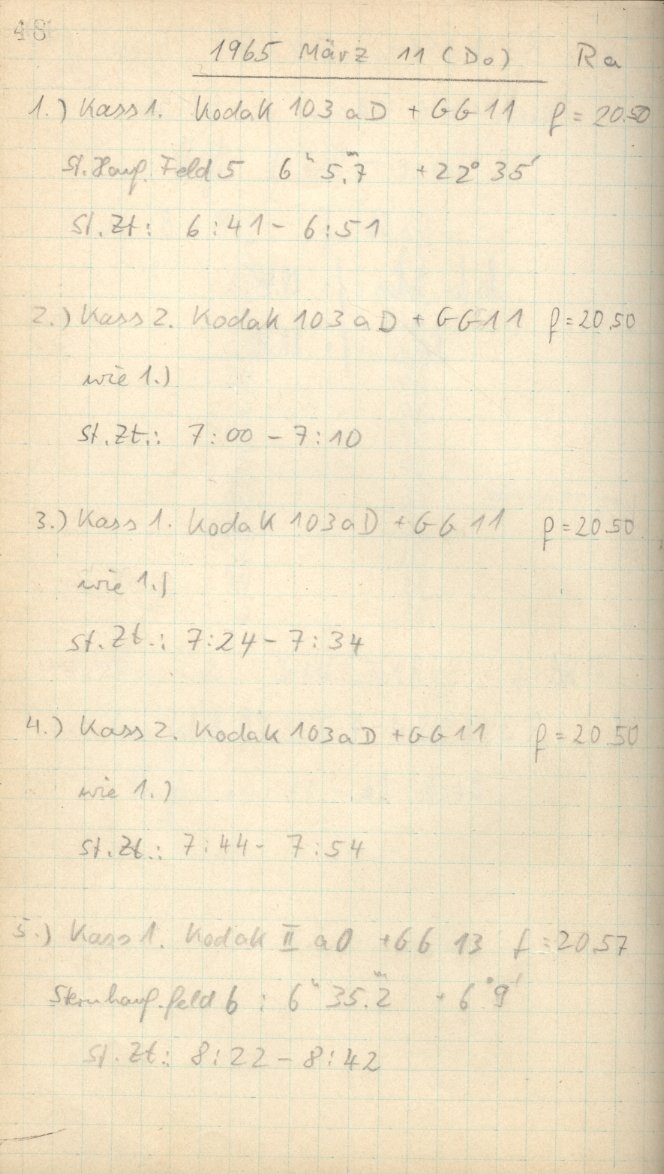 48
1965 März 11 (Do) Ra
1.) Kass 1. Kodak 103 aD + GG 11 f = 20.50
St. Hauf. Feld 5 6ʰ 5.ᵐ7 +22° 35'
St. Zt.: 6:41 - 6:51
2.) Kass 2. Kodak 103 aD + GG 11 f = 20.50
wie 1.)
St. Zt.: 7:00 - 7:10
3.) Kass 1. Kodak 103 aD + GG 11 f = 20.50
wie 1.)
St. Zt.: 7:24 - 7:34
4.) Kass 2. Kodak 103 aD + GG 11 f = 20.50
wie 1.)
St. Zt.: 7:44 - 7:54
5.) Kass 1. Kodak II aO + GG 13 f = 20.57
Sternhauf. feld 6 : 6ʰ 35.ᵐ2 + 6° 9'
St. Zt.: 8:22 - 8:42